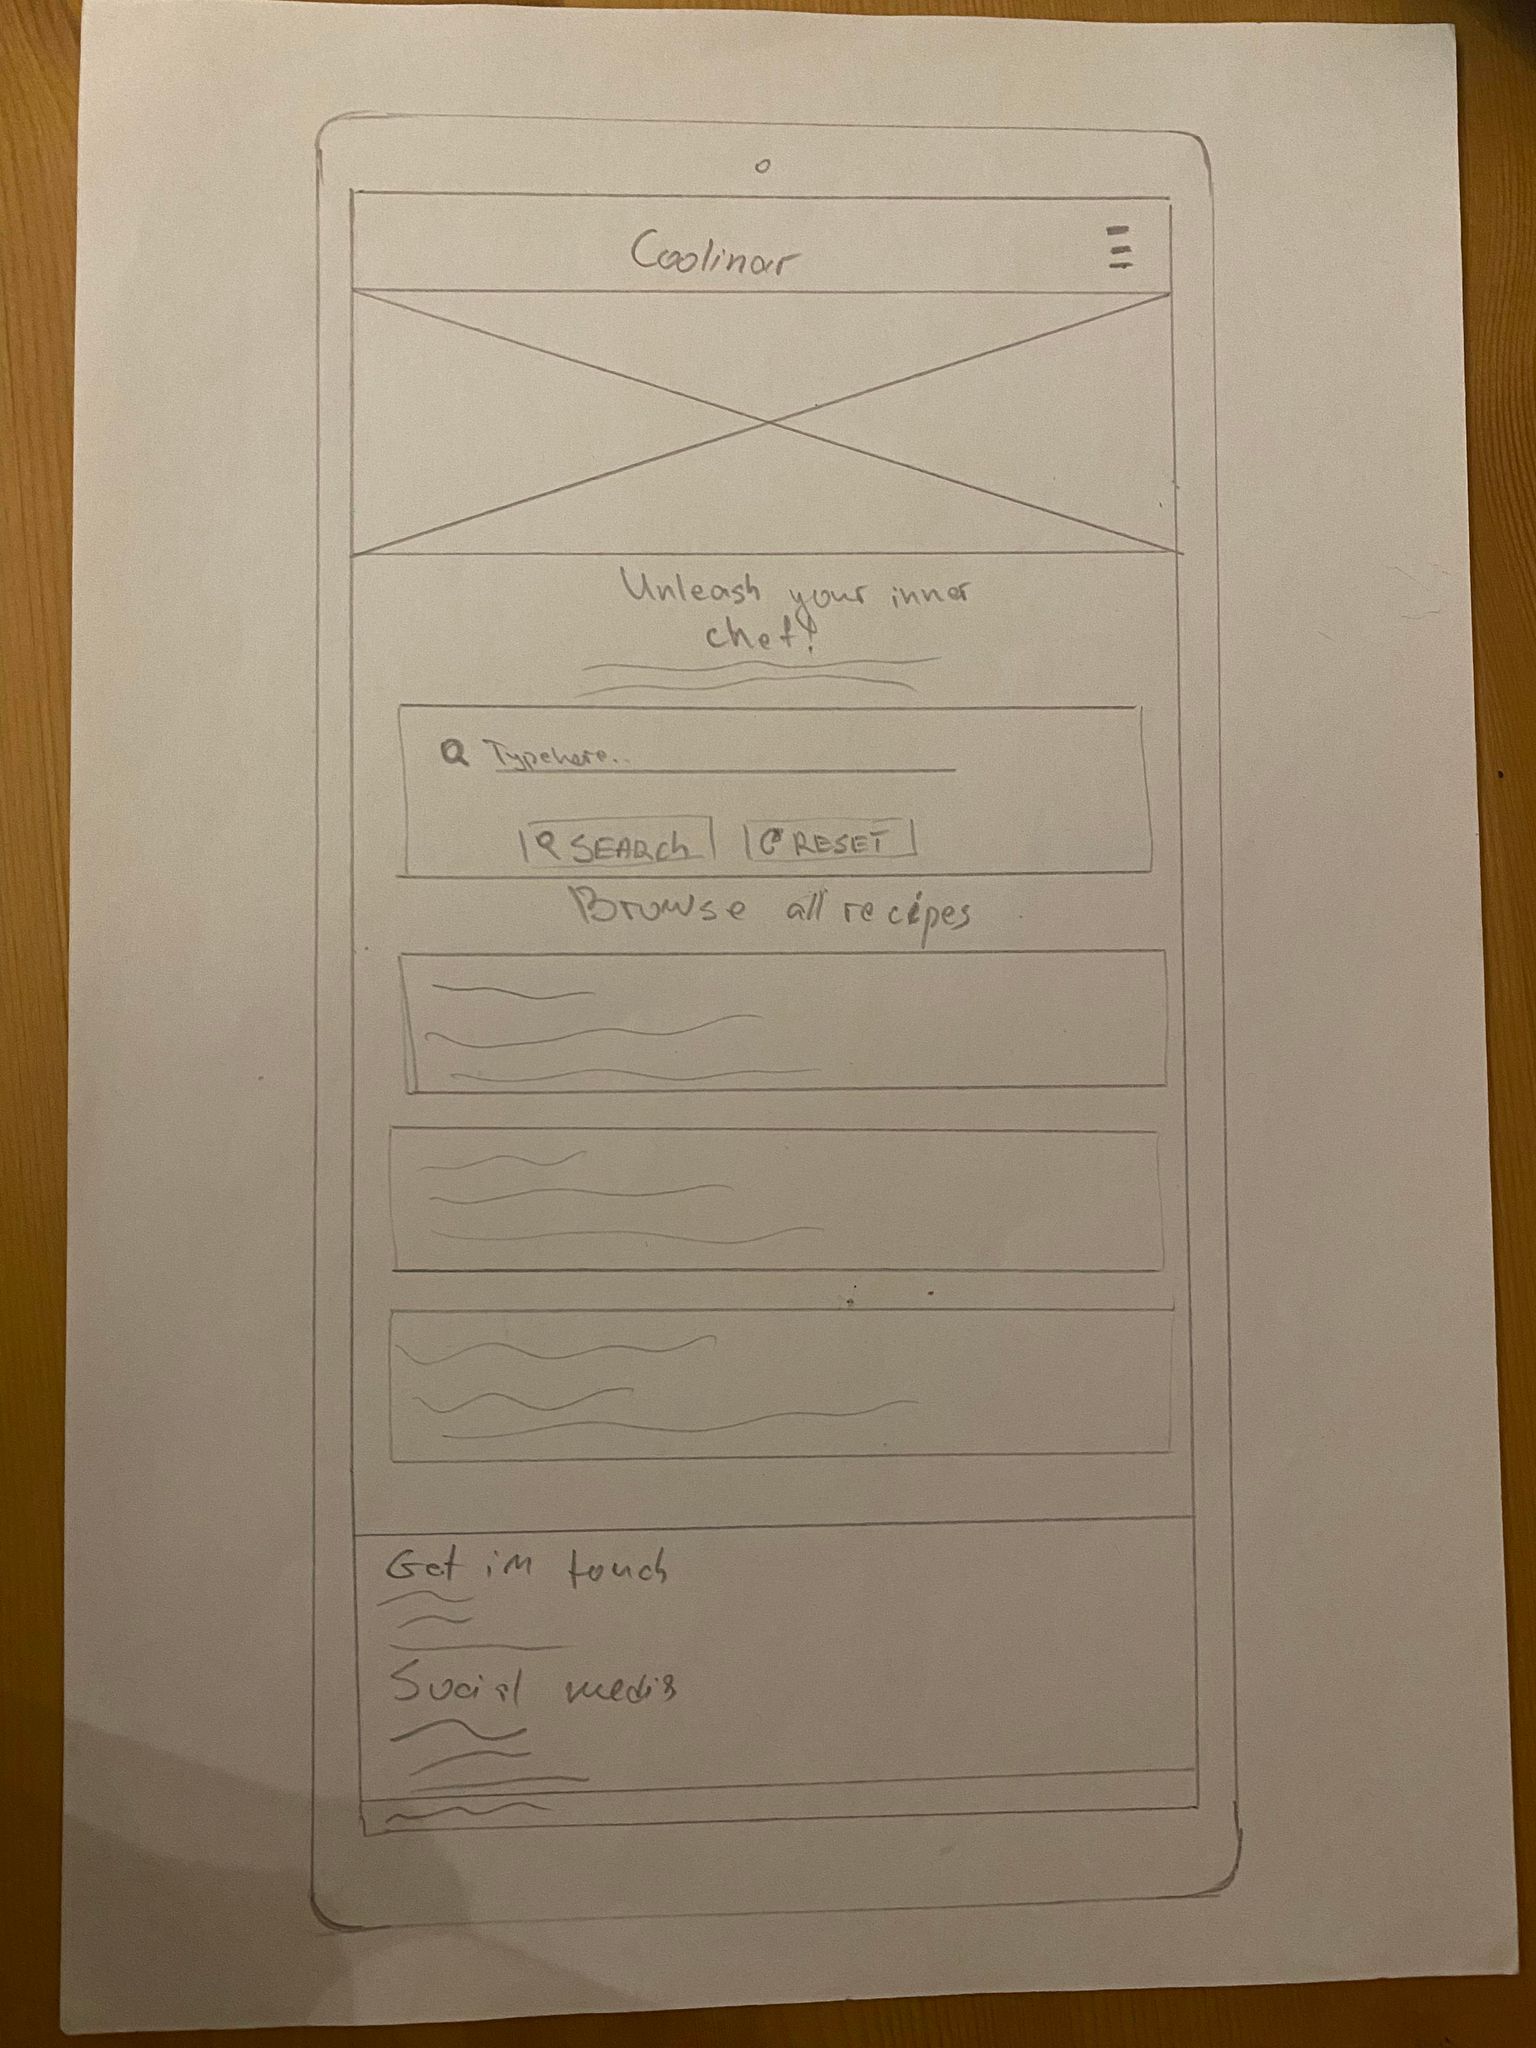 Coolinar
Unleash your inner
chef!
Type here..
SEARCH RESET
Browse all recipes
Get in touch
Social media